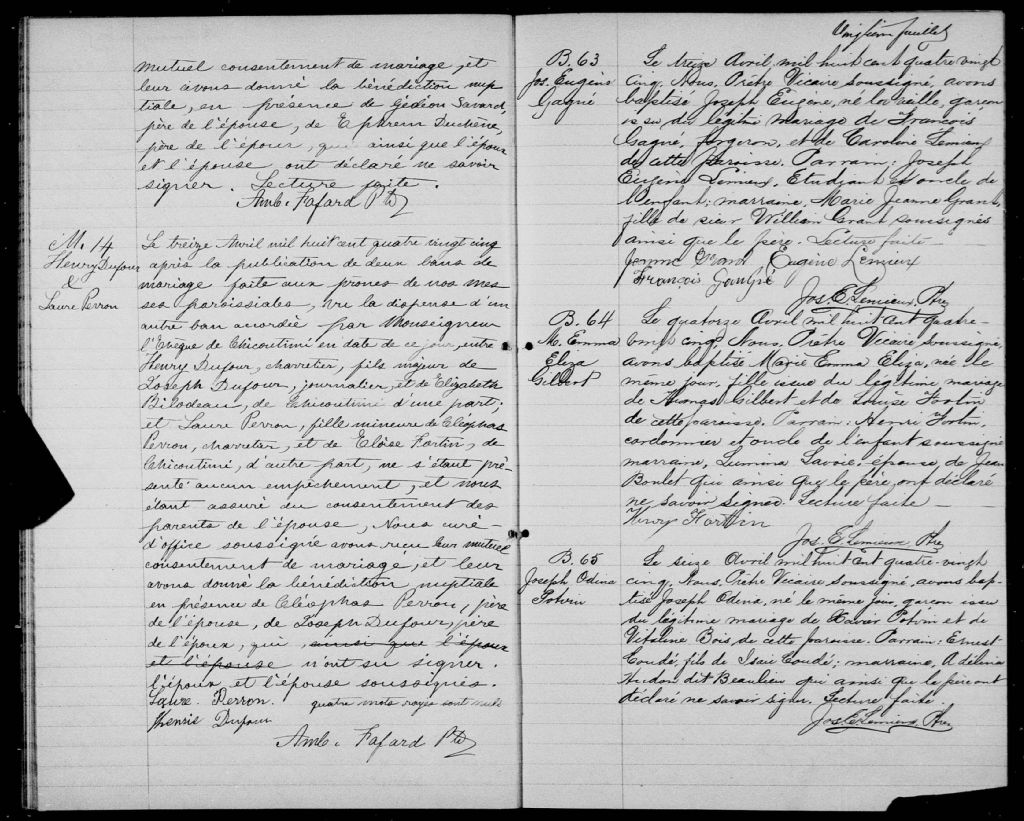 mutuel consentement de mariage, et
leur avons donné la bénédiction nup
tiale, en présence de Gédéon Savard,
père de l'épouse, de Ephrem Duchêne,
père de l'époux, qui ainsi que l'époux
et l'épouse ont déclaré ne savoir
signer. Lecture faite.
Amb. Fafard Ptre
M. 14
Henry Dufour
&
Laure Perron
Le treize Avril mil huit cent quatre vingt cinq
après la publication de deux bans de
mariage faite aux prônes de nos mes
ses paroissiales, vu la dispense d'un
autre ban accordée par Monseigneur
l'Evêque de Chicoutimi en date de ce jour, entre
Henry Dufour, charretier, fils majeur de
Joseph Dufour, journalier, et de Elizabeth
Bilodeau, de Chicoutimi d'une part;
et Laure Perron, fille mineure de Cléophas
Perron, charretier, et de Eloïse Fortin, de
Chicoutimi, d'autre part, ne s'étant pré-
senté aucun empêchement, et nous
étant assuré du consentement des
parents de l'épouse, Nous curé-
d'office soussigné avons reçu leur mutuel
consentement de mariage, et leur
avons donné la bénédiction nuptiale
en présence de Cléophas Perron, père
de l'épouse, de Joseph Dufour, père
de l'époux, qui, ainsi que l'époux
et l'épouse n'ont su signer.
l'époux et l'épouse soussignés.
Laure Perron. quatre mots rayés sont nuls
Henrie Dufour
Amb. Fafard Ptre
Vingtième feuillet
B. 63
Jos. Eugène
Gagné
Le treize Avril mil huit cent quatre vingt
cinq, Nous, Prêtre Vicaire soussigné, avons
baptisé Joseph Eugène, né la veille, garçon
issu du légitime mariage de François
Gagné, forgeron, et de Caroline Lemieux
de cette paroisse. Parrain: Joseph
Eugène Lemieux, Etudiant et oncle de
l'enfant; marraine, Marie Jeanne Grant,
fille de sieur William Grant soussignés
ainsi que le père. Lecture faite —
Grant Eugène Lemieux
François
Jos. E. Lemieux, Ptre
B. 64
M. Emma
Eliza
Gilbert
Le quatorze Avril mil huit cent quatre-
vingt cinq, Nous, Prêtre Vicaire soussigné,
avons baptisé Marie Emma Eliza, née le
même jour, fille issue du légitime mariage
de Thomas Gilbert et de Louise Fortin
de cette paroisse. Parrain: Henri Fortin,
cordonnier et oncle de l'enfant soussigné
marraine, Lumina Savoie, épouse de Jean
Boulet qui ainsi que le père, ont déclaré
ne savoir signer. Lecture faite —
Henry Forttin
Jos. E. Lemieux Ptre
B. 65
Joseph Odina
Potvin
Le seize Avril mil huit cent quatre-vingt
cinq, Nous, Prêtre Vicaire soussigné, avons bap-
tisé Joseph Odina, né le même jour, garçon issu
du légitime mariage de Xavier Potvin et de
Vitaline Bois de cette paroisse. Parrain: Ernest
Coudé, fils de Isaïe Coudé; marraine, Adelina
Hudon dit Beaulieu qui ainsi que le père ont
déclaré ne savoir signer. Lecture faite.
Jos E Lemieux Ptre